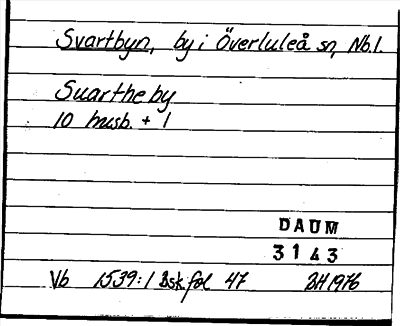 Svartbyn, by i Överluleå sn, Nb.l.
Suartheby
10 husb. + 1
DAUM
3143
Vb 1539:1 Bsk fol 47 BH 1976